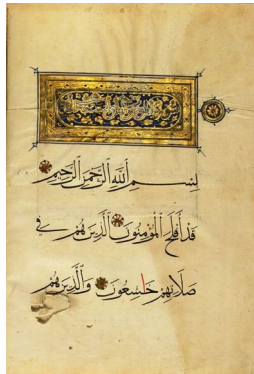 بِسْمِ ٱللَّهِ ٱلرَّحْمَٰنِ ٱلرَّحِيمِ
قَدْ أَفْلَحَ ٱلْمُؤْمِنُونَ ٱلَّذِينَ هُمْ فِي
صَلَاتِهِمْ خَاشِعُونَ وَٱلَّذِينَ هُمْ